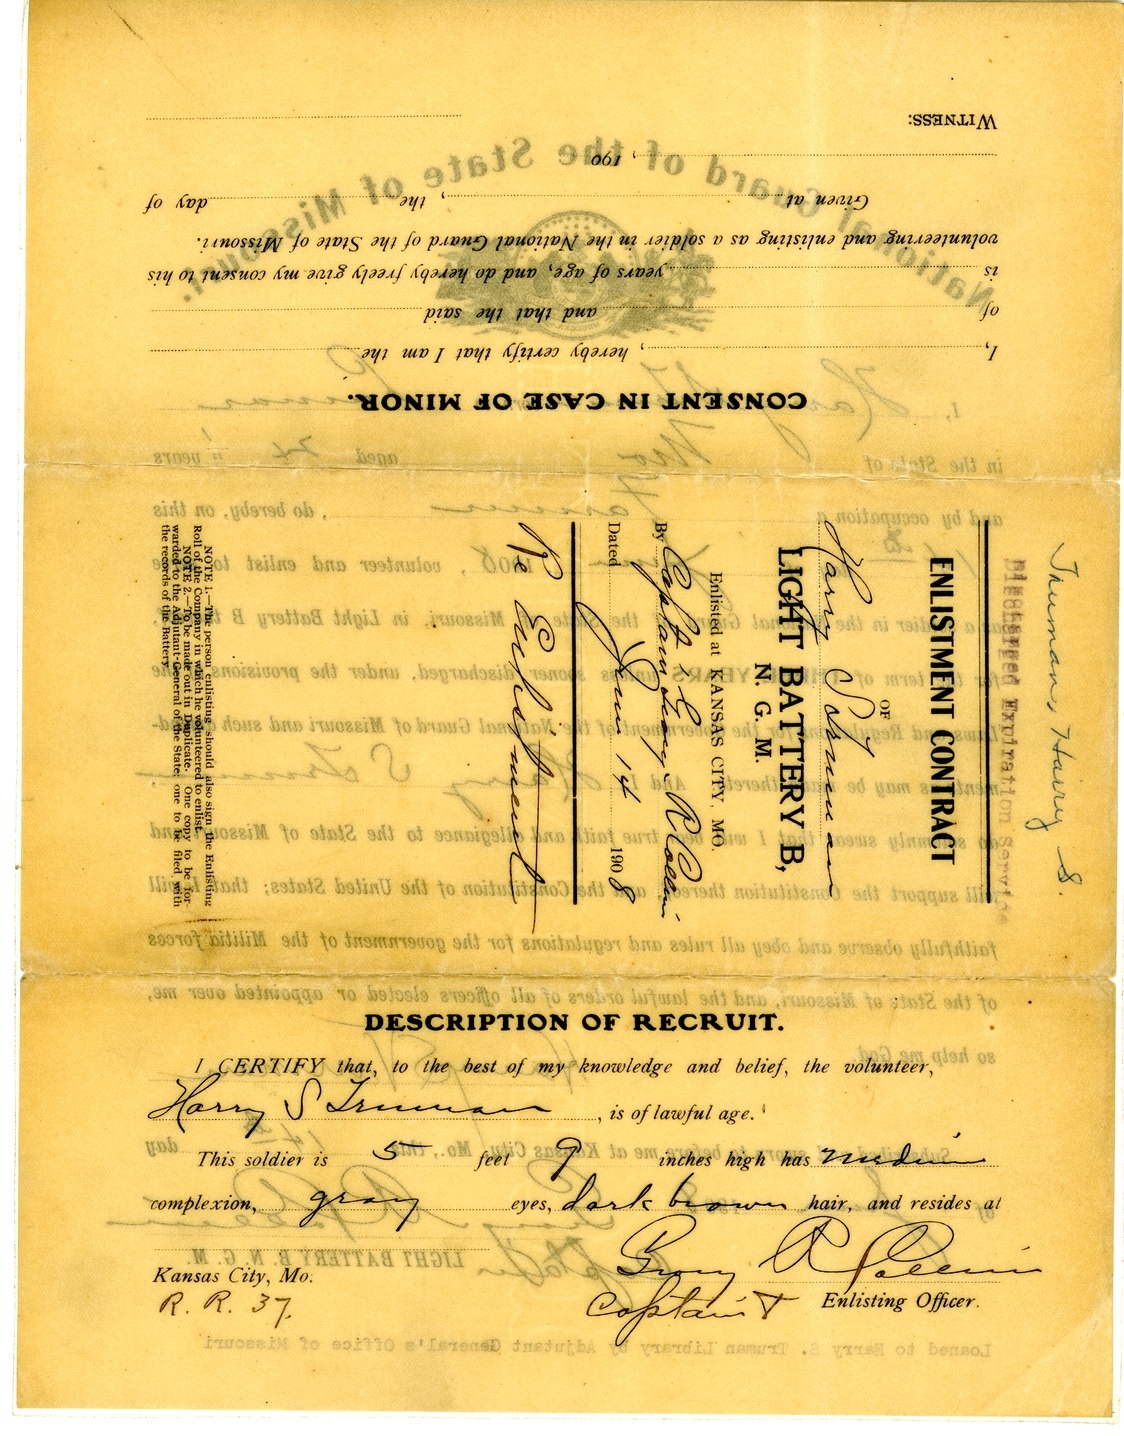 WITNESS:
, 190
Given at , the day of
volunteering and enlisting as a soldier in the National Guard of the State of Missouri.
is years of age, and do hereby freely give my consent to his
of and that the said
I, , hereby certify that I am the
CONSENT IN CASE OF MINOR.
Truman, Harry S.
Discharged Expiration Service
ENLISTMENT CONTRACT
OF
Harry S Truman
LIGHT BATTERY B,
N. G. M.
Enlisted at KANSAS CITY, MO.
By Captain Geo. R Collins
Dated June 14 1908
Re Enlistment
NOTE 1.—The person enlisting should also sign the Enlisting
Roll of the Company in which he volunteered to enlist.
NOTE 2.—To be made out in Duplicate. One copy to be for-
warded to the Adjutant-General of the State, one to be filed with
the records of the Battery.
DESCRIPTION OF RECRUIT.
I CERTIFY that, to the best of my knowledge and belief, the volunteer,
Harry S Truman , is of lawful age.
This soldier is 5 feet 9 inches high has medium
complexion, gray eyes, dark brown hair, and resides at
Kansas City, Mo.
R. R. 37.
George R Collins
Captain Enlisting Officer.
Loaned to Harry S. Truman Library by Adjutant General's Office of Missouri